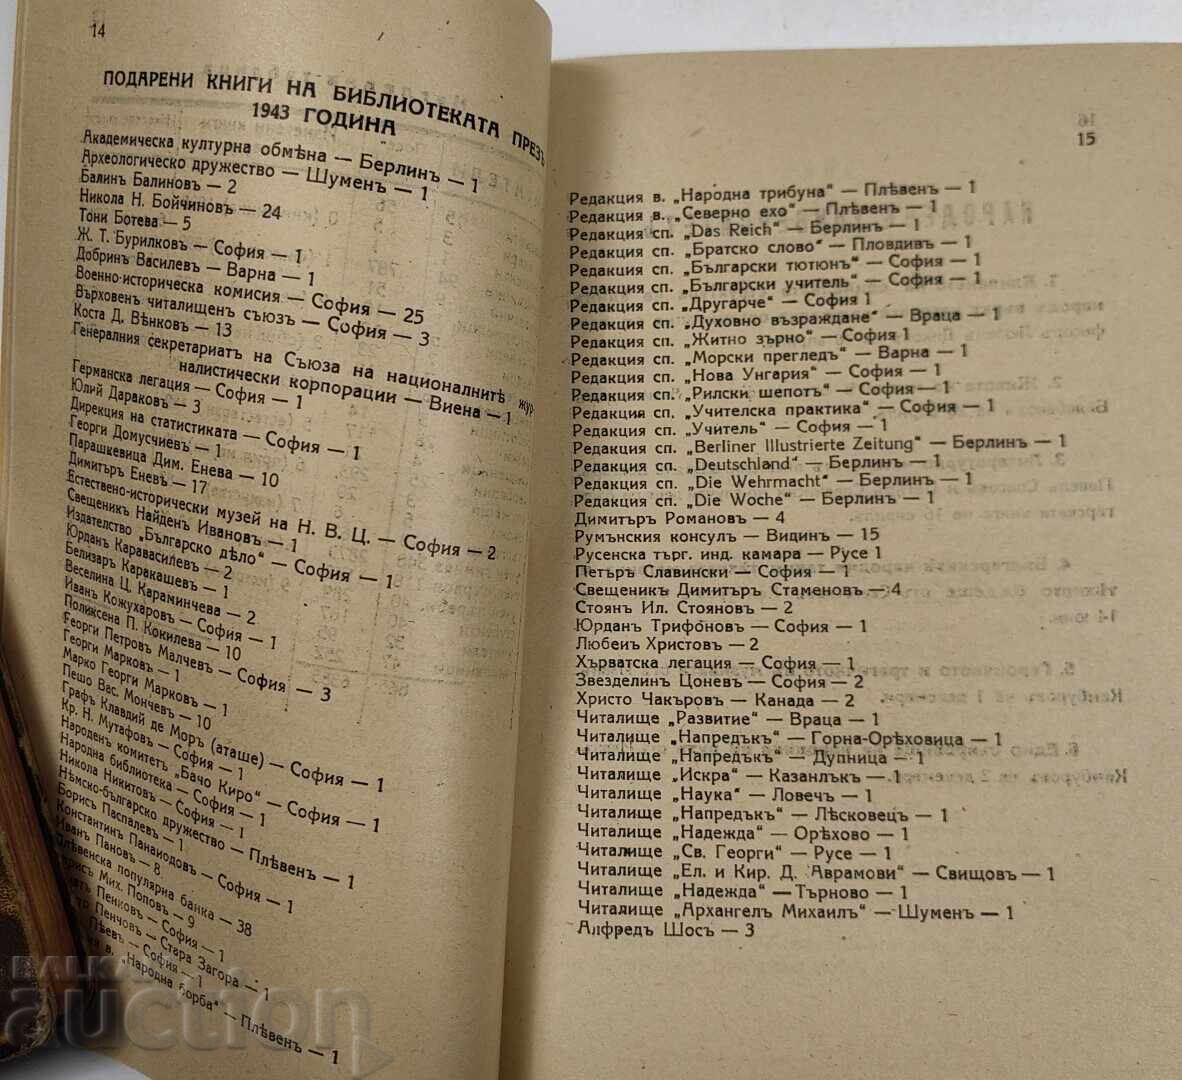 14
ПОДАРЕНИ КНИГИ НА БИБЛИОТЕКАТА ПРЕЗЪ
1943 ГОДИНА
Академическа културна обмѣна — Берлинъ — 1
Археологическо дружество — Шуменъ — 1
Балинъ Балиновъ — 2
Никола Н. Бойчиновъ — 24
Тони Ботева — 5
Ж. Т. Бурилковъ — София — 1
Добринъ Василевъ — Варна — 1
Военно-историческа комисия — София — 25
Върховенъ читалищенъ съюзъ — София — 3
Коста Д. Вѣнковъ — 13
Генералния секретариатъ на Съюза на националнитѣ жур-
налистически корпорации — Виена — 1
Германска легация — София — 1
Юлий Дараковъ — 3
Дирекция на статистиката — София — 1
Георги Домусчиевъ — 1
Парашкевица Дим. Енева — 10
Димитъръ Еневъ — 17
Естествено-исторически музей на Н. В. Ц. — София — 2
Свещеникъ Найденъ Ивановъ — 1
Издателство „Българско дѣло“ — София — 1
Юрданъ Каравасилевъ — 2
Белизаръ Каракашевъ — 1
Веселина Ц. Караминчева — 2
Иванъ Кожухаровъ — София — 1
Поликсена П. Кокилева — 10
Георги Петровъ Малчевъ — София — 3
Георги Марковъ — 1
Марко Георги Марковъ — 1
Пешо Вас. Мончевъ — 10
Графъ Клавдий де Моръ (аташе) — София — 1
Кр. Н. Мутафовъ — София — 1
Народенъ комитетъ „Бачо Киро“ — София — 1
Народна библиотека — София — 1
Никола Никитовъ — София — 1
Нѣмско-българско дружество — Плѣвенъ — 1
Борисъ Паспалевъ — 1
Константинъ Панаиодовъ — София — 1
Иванъ Пановъ — 8
Плѣвенска популярна банка — 38
Борисъ Мих. Поповъ — 9
Пенковъ — София — 1
Пенчовъ — Стара Загора — 1
Пѣевъ — София — 1
в. „Народна борба“ — Плѣвенъ — 1
16
15
Редакция в. „Народна трибуна“ — Плѣвенъ — 1
Редакция в. „Северно ехо“ — Плѣвенъ — 1
Редакция сп. „Das Reich“ — Берлинъ — 1
Редакция сп. „Братско слово“ — Пловдивъ — 1
Редакция сп. „Български тютюнъ“ — София — 1
Редакция сп. „Български учитель“ — София — 1
Редакция сп. „Другарче“ — София 1
Редакция сп. „Духовно възраждане“ — Враца — 1
Редакция сп. „Житно зърно“ — София 1
Редакция сп. „Морски прегледъ“ — Варна — 1
Редакция сп. „Нова Унгария“ — София — 1
Редакция сп. „Рилски шепотъ“ — София — 1
Редакция сп. „Учителска практика“ — София — 1
Редакция сп. „Учитель“ — София — 1
Редакция сп. „Berliner Illustrierte Zeitung“ — Берлинъ — 1
Редакция сп. „Deutschland“ — Берлинъ — 1
Редакция сп. „Die Wehrmacht“ — Берлинъ — 1
Редакция сп. „Die Woche“ — Берлинъ — 1
Димитъръ Романовъ — 4
Румънския консулъ — Видинъ — 15
Русенска търг. инд. камара — Русе 1
Петъръ Славински — София — 1
Свещеникъ Димитъръ Стаменовъ — 4
Стоянъ Ил. Стояновъ — 2
Юрданъ Трифоновъ — София — 1
Любенъ Христовъ — 2
Хърватска легация — София — 1
Звезделинъ Цоневъ — София — 2
Христо Чакъровъ — Канада — 2
Читалище „Развитие“ — Враца — 1
Читалище „Напредъкъ“ — Горна-Орѣховица — 1
Читалище „Напредъкъ“ — Дупница — 1
Читалище „Искра“ — Казанлъкъ — 1
Читалище „Наука“ — Ловечъ — 1
Читалище „Напредъкъ“ — Лѣсковецъ — 1
Читалище „Надежда“ — Орѣхово — 1
Читалище „Св. Георги“ — Русе — 1
Читалище „Ел. и Кир. Д. Аврамови“ — Свищовъ — 1
Читалище „Надежда“ — Търново — 1
Читалище „Архангелъ Михаилъ“ — Шуменъ — 1
Алфредъ Шосъ — 3
auction